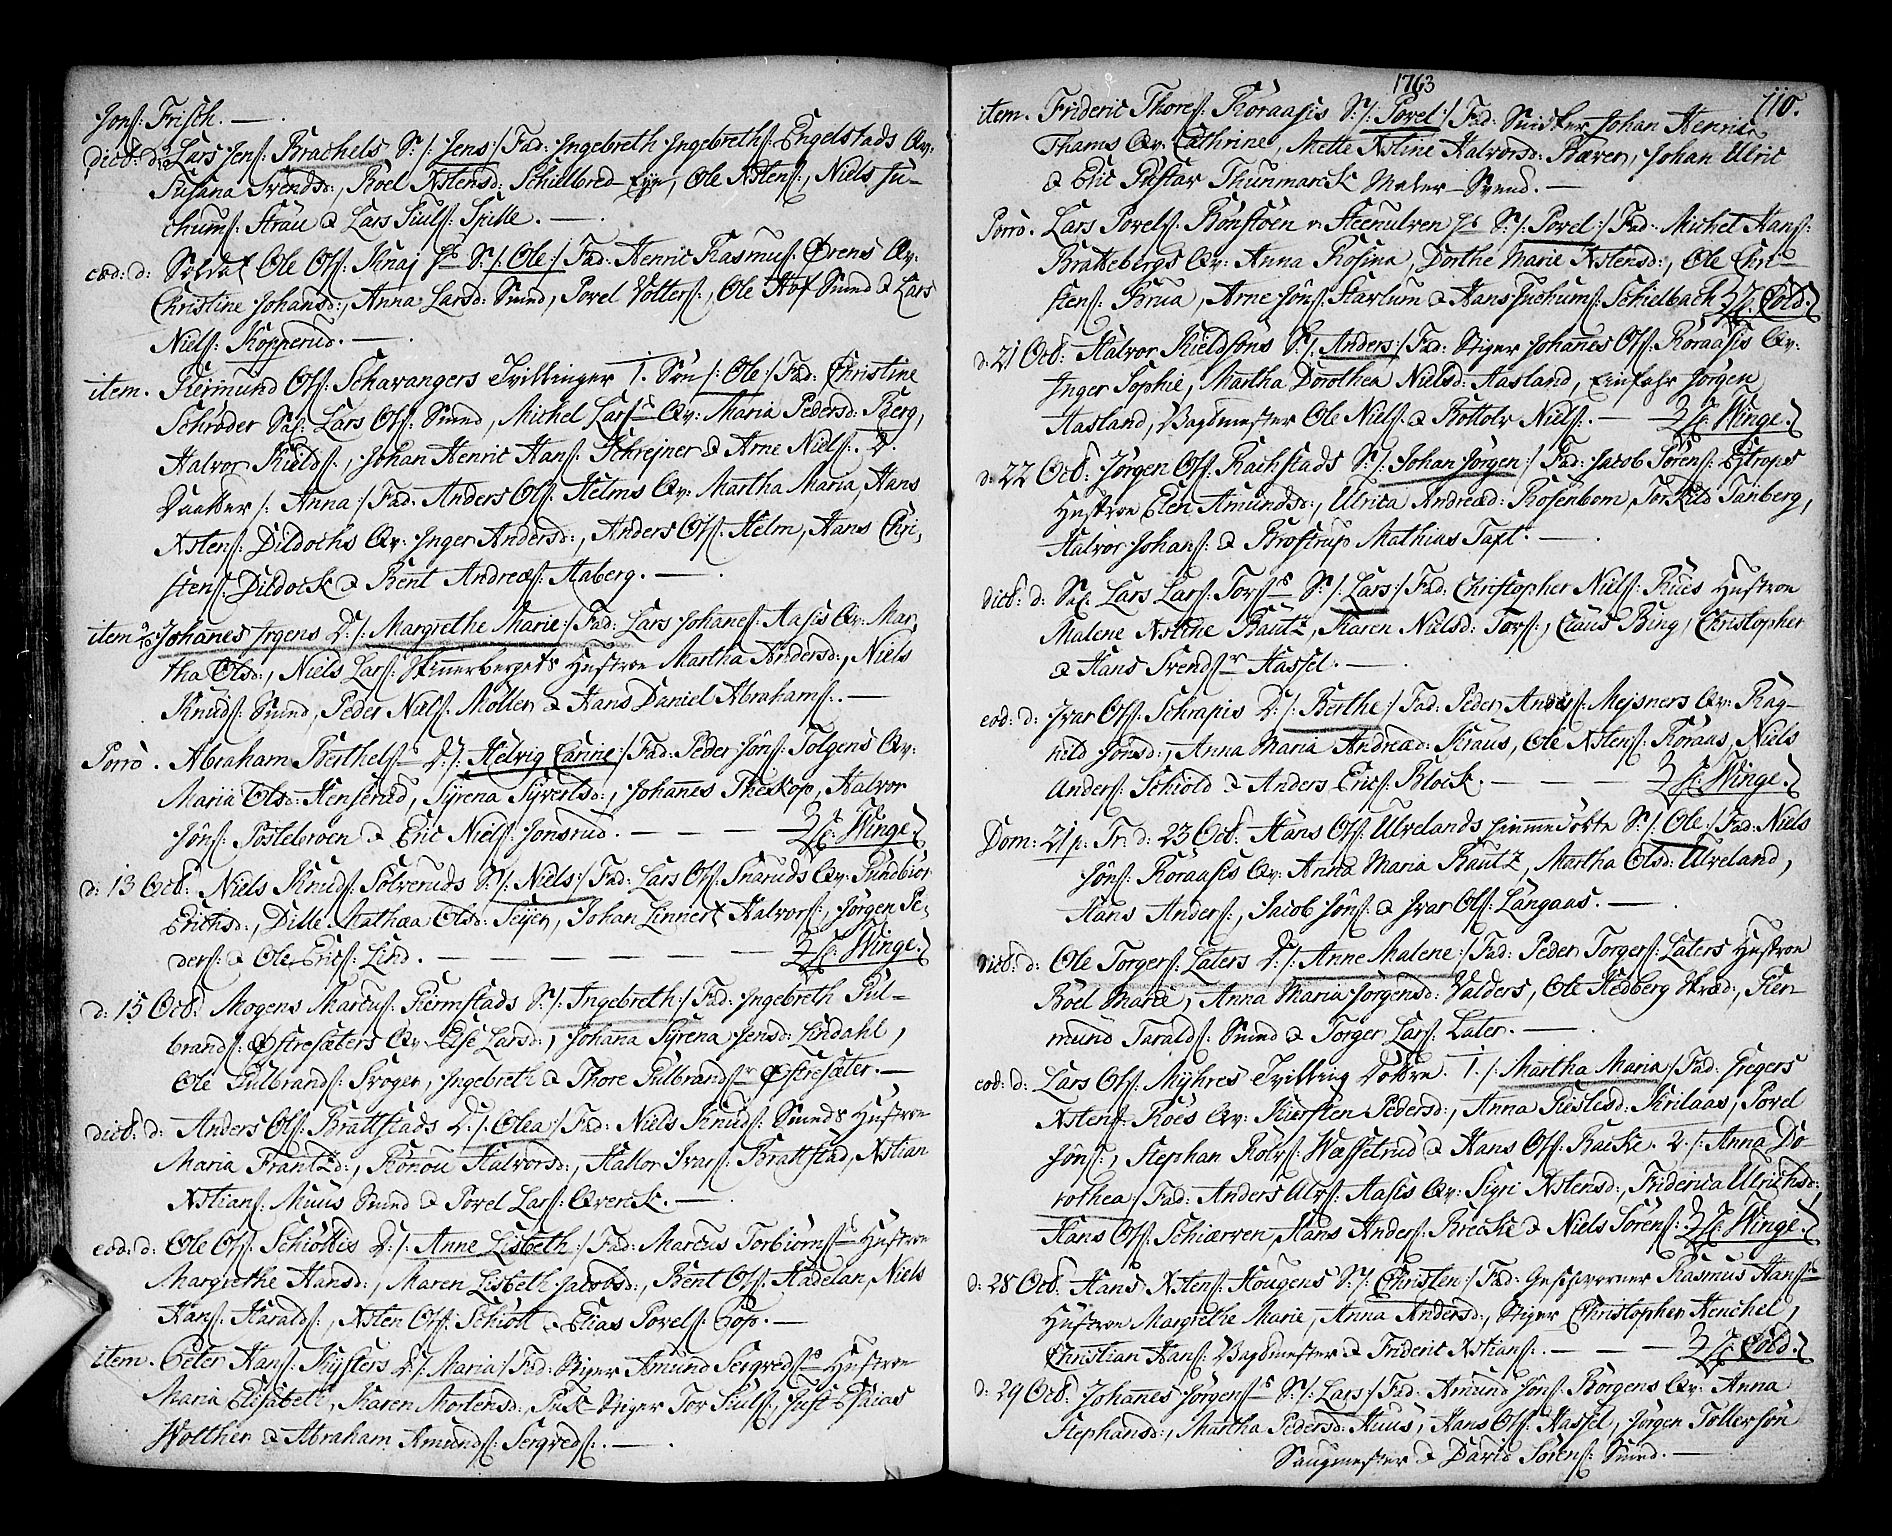 Jonſ: Friſch. —
dict: d: Lars Jenſ: Brachels S: /: Jens :/ Fad: Ingebreth Ingebrethſ: Engelstads Qv:
Susana Svendsd:, Roel Xstensd: Schielbred Eye, Ole Xstenſ:, Niels Ju-
chumſ: Strau & Lars Siulſ: Spille. —
eod: d: Soldat Ole Olſ: Knaj S: /: Ole :/ Fad: Henric Rasmuſ: Ørens Qv:
Christine Johansd:, Anna Larsd: Smed, Povel Volterſ:, Ole Hof Smed & Lars
Nielſ: Kopperud. —
item. Kiermund Olſ: Schavangers Tvillinger 1. Søn /: Ole :/ Fad: Christine
Schrøder Sal: Lars Olſ: Smed, Michel Larſ: Qv: Maria Pedersd: Berg,
Halvor Kields:, Johan Henric Hanſ: Schrejner & Arne Nielſ: 2.
Daatter /: Anna :/ Fad: Anders Olſ: Helms Qv: Martha Maria, Hans
Xstenſ: Dildochs Qv: Inger Andersd:, Anders Olſ: Helm, Hans Chri-
stenſ: Dildock & Bent Andreæſ: Aaberg. —
item Johanes Irgens D: /: Margrethe Marie :/ Fad: Lars Johaneſ: Aasis Qv: Mar-
tha Olsd:, Niels Larſ: Skinerbergets Hustroe Martha Andersd:, Niels
Knudſ: Smed, Peder Nielſ: Møller & Hans Daniel Abrahamſ: —
Porro. Abraham Berthelſ: D: /: Helvig Carine :/ Fad: Peder Jonſ: Tolgens Qv:
Maria Olsd: Henserud, Syrena Syvertsd:, Johanes Theskop, Halvor
Jonſ: Postebroen & Eric Nielſ: Jonsrud. — — — Winge.
d: 13 Oct: Niels Knudſ: Solveruds S: /: Niels :/ Fad: Lars Olſ: Snaruds Qv: Gundbiør
Erichsd:, Dille Mathæa Olsd: Seyer, Johan Linnert Halvorſ:, Jørgen Pe-
derſ: & Ole Ericſ: Lind. — — — — — Winge.
d: 15 Oct: Mogens Marcuſ: Fiermstads S: /: Ingebreth :/ Fad: Ingebreth Gul-
brandſ: Østresæters Qv: Else Larsd:, Johana Syrena Jensd: Lindahl,
Ole Gulbrandſ: Svoger, Ingebreth & Thore Gulbrandſ: Østresæter. —
dict: d: Anders Olſ: Brattstads D: /: Olea :/ Fad: Niels Knudſ: Smeds Hustroe
Maria Frantzd:, Rønou Halvorsd:, Hallor Ivarſ: Brattstad, Xstian
Xstianſ: Muus Smed & Povel Larſ: Qverck. —
eod: d: Ole Olſ: Schiøttis D: /: Anne Lisbeth :/ Fad: Marcus Torbiørnſ: Hustroe
Margrethe Hansd:, Maren Lisbeth Jacobsd:, Bent Olſ: Hadelan, Niels
Hanſ: Haraldſ:, Xsten Olſ: Schiøtt & Elias Povelſ: Gop. —
item. Peter Hanſ: Thysters D: /: Maria :/ Fad: Stiger Amund Sergvedſ: Hustroe
Maria Elisabeth, Karen Mortensd:, Puk Stiger Tor Siulſ:, Just Esaias
Wolther & Abraham Amundſ: Sergvedſ: —
1763
110.
item. Frideric Thoreſ: Koraasis S: /: Povel :/ Fad: Snidker Johan Henric
Thams Qv: Cathrine, Mette Xstine Halvorsd: Bæver, Johan Ulric
& Eric Gustav Thunmarck Maler-Svend. —
Porro. Lars Povelſ: Rønstøen v: Steenulven S: /: Povel :/ Fad: Michel Hanſ:
Brattebergs Qv: Anna Rosina, Dorthe Marie Xstensd:, Ole Chri-
stenſ: Brua, Arne Jonſ: Skarlum & Hans Juchumſ: Schielbach. Cold.
d: 21 Oct: Halvor Kieldsøns S: /: Anders :/ Fad: Stiger Johanes Olſ: Koraasis Qv:
Inger Sophie, Martha Dorothea Nielsd: Aasland, Einfahr Jørgen
Aasland, Vagtmester Ole Nielſ: & Bottolv Nielſ: — Winge.
d: 22 Oct: Jørgen Olſ: Rachstads S: /: Johan Jørgen :/ Fad: Jacob Sørenſ: Estrops
Hustroe Elen Amundsd:, Ulrica Andreæd: Rosenbom, Torkild Tanberg,
Halvor Johanſ: & Brostrup Mathias Taxt. —
dict: d: Sal. Lars Larſ: Torſ: S: /: Lars :/ Fad: Christopher Nielſ: Ruus Hustroe
Malene Xstine Bautz, Karen Nielsd: Torſ:, Claus Bing, Christopher
& Hans Svendſ: Hassel. —
eod: d: Ivar Olſ: Schrapis D: /: Berthe :/ Fad: Peder Andersſ: Mejsners Qv: Rag-
nild Jonsd:, Anna Maria Andreæd: Kraus, Ole Xstenſ: Koraas, Niels
Anderſ: Schiold & Anders Ericſ: Block. — — — Winge.
Dom: 21 p. Tr: d: 23 Oct: Hans Olſ: Ulvelands hiemmedøbte S: /: Ole :/ Fad: Niels
Jonſ: Koraasis Qv: Anna Maria Bautz, Martha Olsd: Ulveland,
Hans Anderſ:, Jacob Jonſ: & Ivar Olſ: Langaas. —
dict: d: Ole Torgerſ: Laters D: /: Anne Malene :/ Fad: Peder Torgerſ: Laters Hustroe
Roel Marie, Anna Maria Jørgensd: Valders, Ole Hedberg Skræd:, Kier-
mund Taraldſ: Smed & Torger Larſ: Later. —
eod: d: Lars Olſ: Myhres Tvilling Døttre. 1. /: Martha Maria :/ Fad: Jegers
Xstenſ: Roes Qv: Kiersten Pedersd:, Anna Gislesd: Krilaas, Povel
Jonſ:, Stephan Rolvſ: Wasselrud & Hans Olſ: Backe. 2. /: Anna Do
rothea :/ Fad: Anders Alvſ: Aasis Qv: Sigri Xstensd:, Friderica Ulrichsd:,
Hans Olſ: Schiærven, Hans Anderſ: Brecke & Niels Sørenſ: Winge.
d: 28 Oct: Hans Xstenſ: Hougens S: /: Christen :/ Fad: Geschworner Rasmus Hanſ:
Hustroe Margrethe Marie, Anna Andersd:, Stiger Christopher Henchel,
Christian Hanſ: Vagtmester & Frideric Xstianſ: — — Cold.
d: 29 Oct: Johanes Jørgenſ: S: /: Lars :/ Fad: Amund Jonſ: Borgens Qv: Anna
Stephansd:, Martha Pedersd: Huus, Hans Olſ: Hassel, Jørgen Tollersøn
Saugmester & David Sørenſ: Smed. —